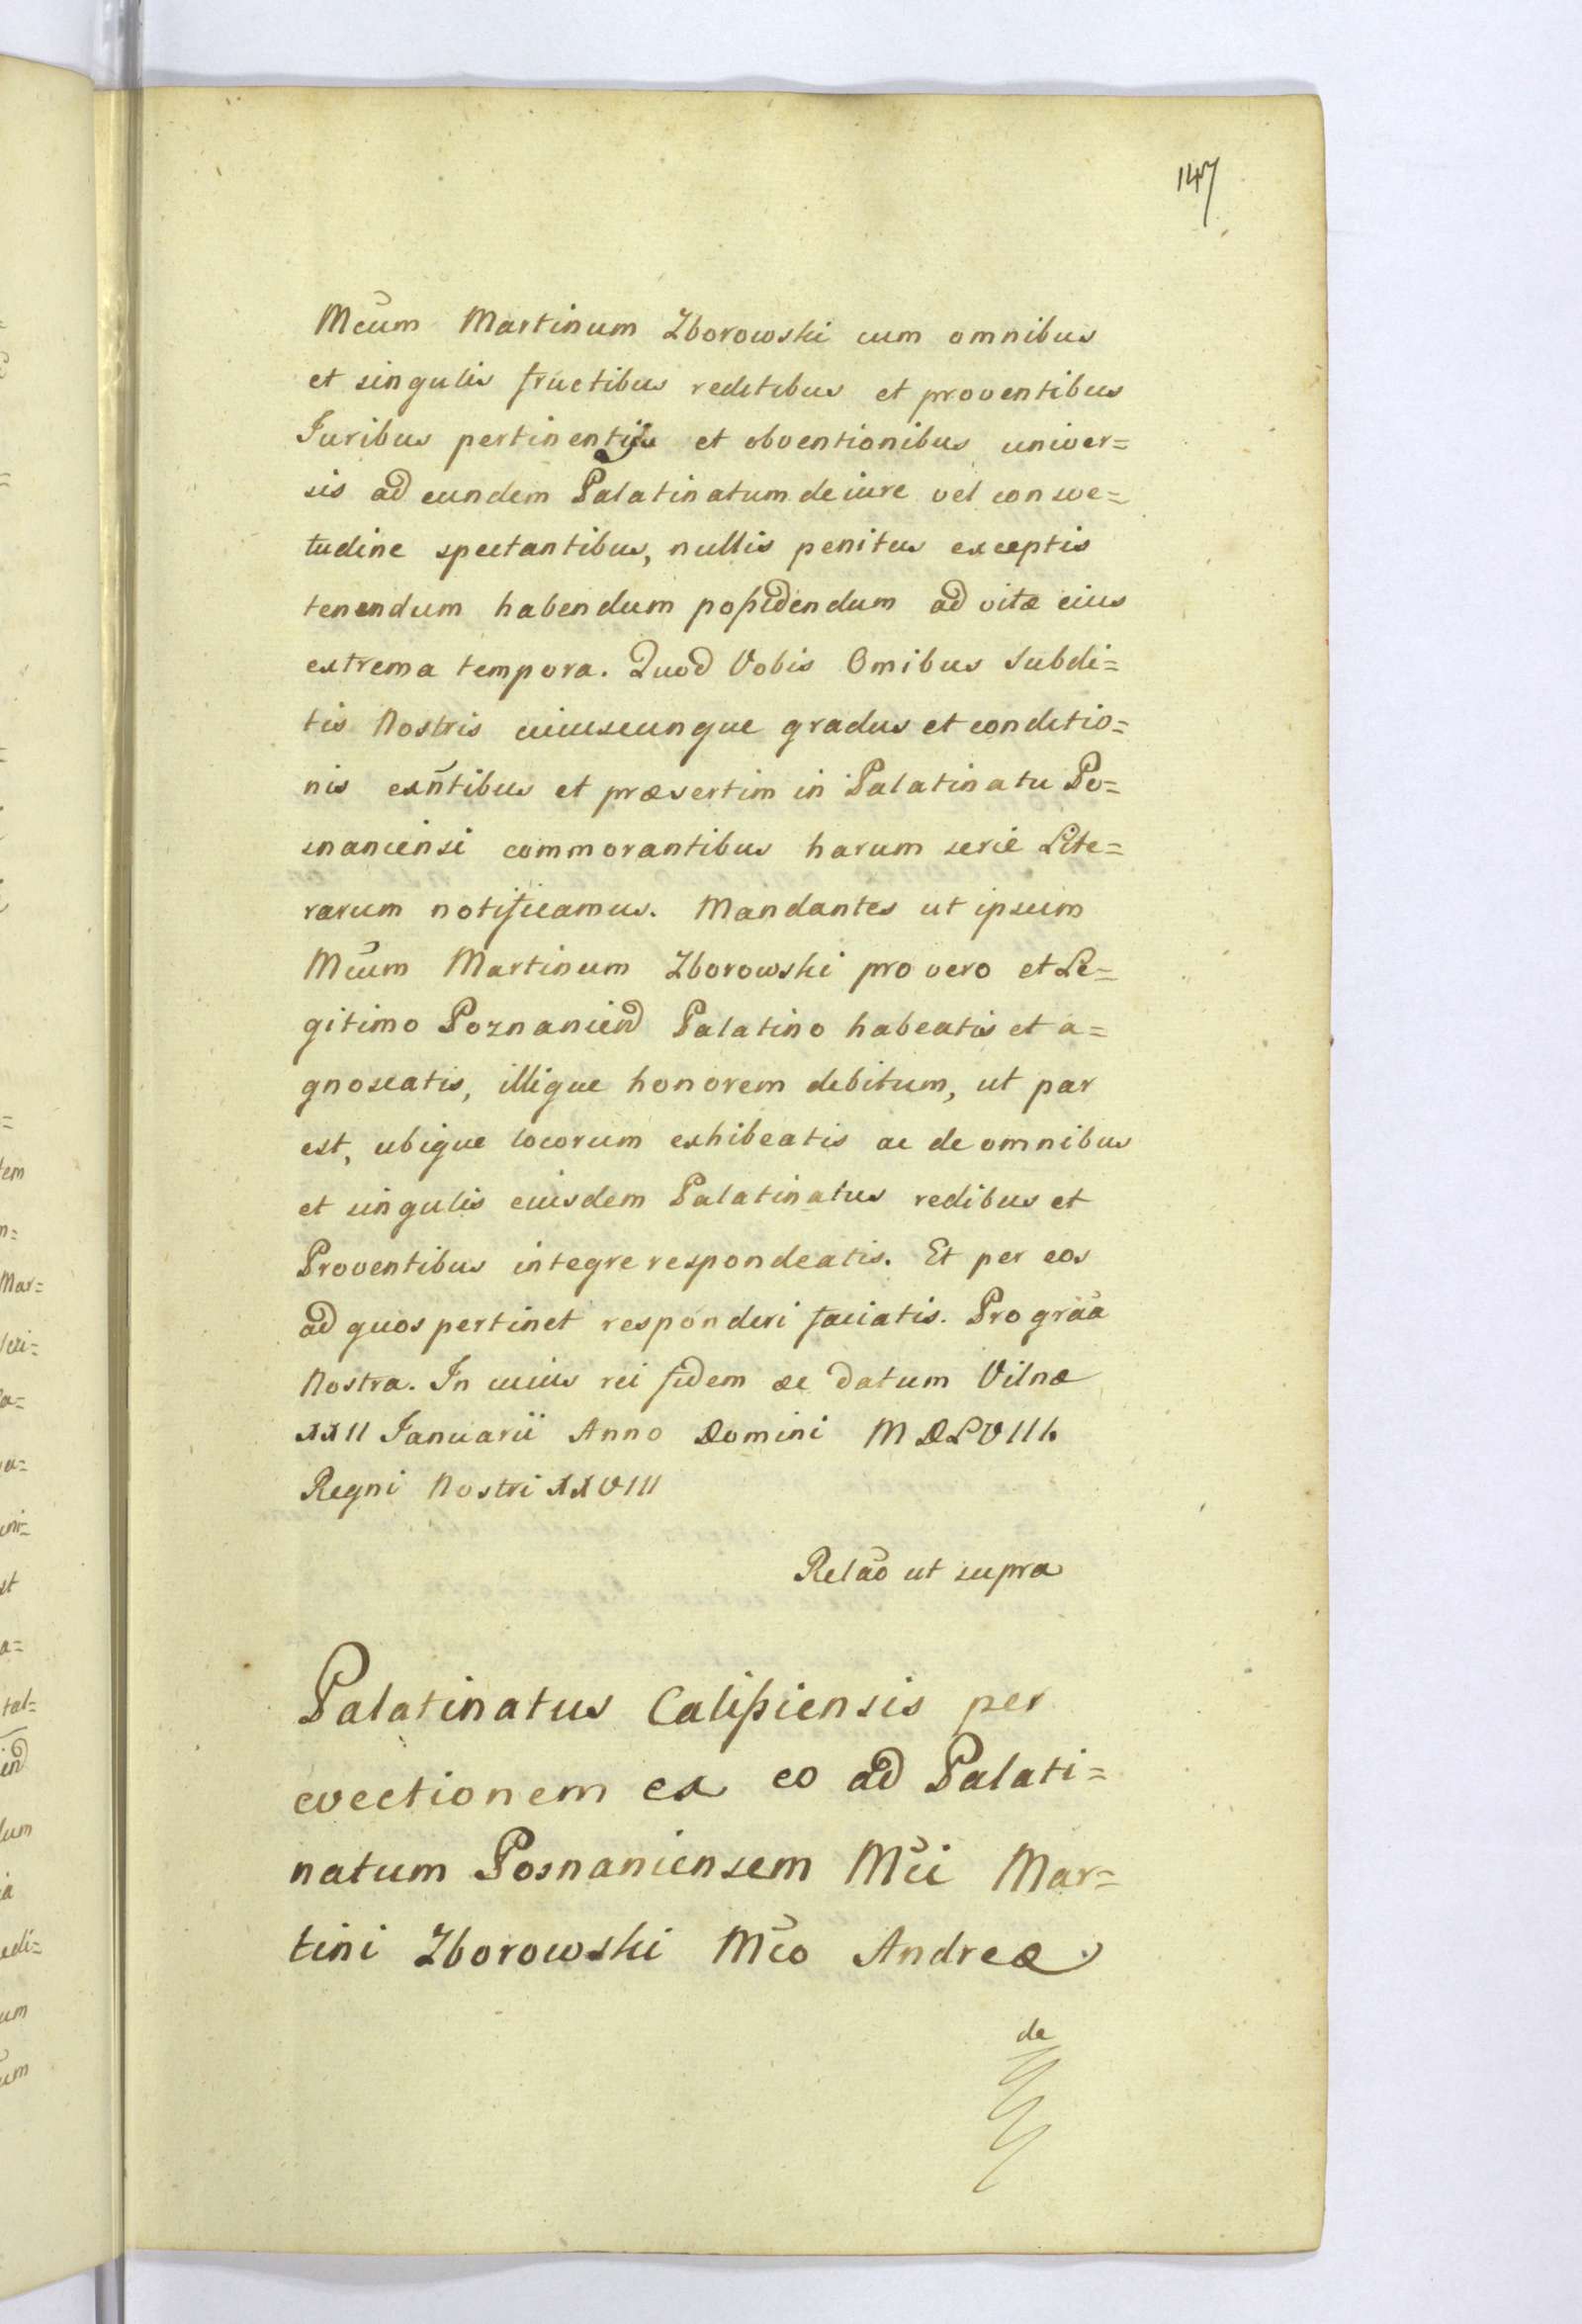 147
Mcūm Martinum Zborowski cum omnibus
et singulis fructibus reditibus et proventibus
Juribus pertinentijs et obventionibus univer=
sis ad eundem Palatinatum de iure vel conswe=
tudine spectantibus, nullis penitus exceptis
tenendum habendum poßidendum ad vitæ eius
extrema tempora. Quod Vobis Omibus Subdi=
tis Nostris cuiuscunque gradus et conditio=
nis exn̄tibus et præsertim in Palatinatu Po=
snaniensi commorantibus harum serie Lite=
rarum notificamus. Mandantes ut ipsum
Mcūm Martinum Zborowski pro vero et Le=
gitimo Poznanien Palatino habeatis et a=
gnoscatis, illique honorem debitum, ut par
est, ubique locorum exhibeatis ac de omnibus
et singulis eiusdem Palatinatus redibus et
Proventibus integre respondeatis. Et per eos
ad quos pertinet responderi faciatis. Pro grāa
Nostra. In cuius rei fidem &c datum Vilnæ
XXII Januarii Anno Domini MDLVIII.
Regni Nostri XXVIII
Relāo ut supra
Palatinatus Calißiensis per
evectionem ex eo ad Palati=
natum Posnaniensem Mc̄i Mar=
tini Zborowski Mc̄o Andreæ
de